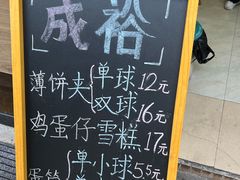 成裕
薄饼夹 单球12元
双球16元
鸡蛋仔雪糕17元
蛋筒 单小球5.5元